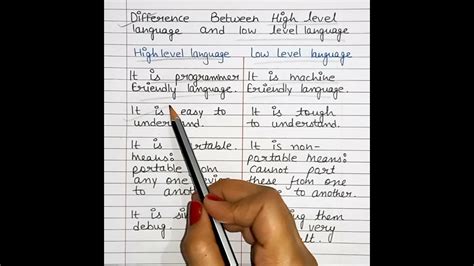 Difference Between High level
language and low level language
High level language
Low Level language
It is programmer
Friendly language.
It is machine
Friendly language.
It is easy to
understand.
It is tough
to understand.
It is
means:
portable
any one
to
It is non-
portable means:
Cannot port
these from one
to another.
It is
debug.
them
very